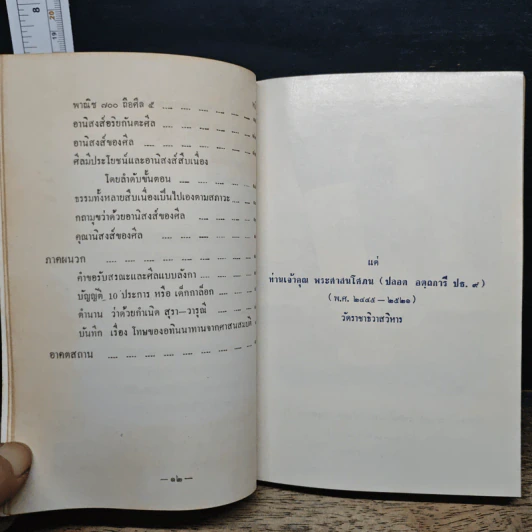 พาณิช ๗๐๐ ถือศีล ๕ .... .... .... .... ....
อานิสงส์อริยกันตะศีล .... .... .... ....
อานิสงส์ของศีล .... .... .... .... ....
ศีลมีประโยชน์และอานิสงส์สืบเนื่อง
โดยลำดับขั้นตอน .... .... .... ....
ธรรมทั้งหลายสืบเนื่องเป็นไปเองตามสภาวะ
กถามุขว่าด้วยอานิสงส์ของศีล .... ....
คุณานิสงส์ของศีล .... .... .... ....
ภาคผนวก .... .... .... .... .... ....
คำขอรับสรณะและศีลแบบลังกา .... ....
บัญญัติ 10 ประการ หรือ เด็กกาล็อก ....
ตำนาน ว่าด้วยกำเนิด สุรา–วารุณี ....
บันทึก เรื่อง โทษของอทินนาทานจากศาสนสมบัติ
อาคตสถาน .... .... .... .... .... ....
— ๑๒ —
แด่
ท่านเจ้าคุณ พระศาสนโศภน (ปลอด อตฺถการี ปธ. ๙)
(พ.ศ. ๒๔๔๕ – ๒๕๒๑)
วัดราชาธิวาสวิหาร